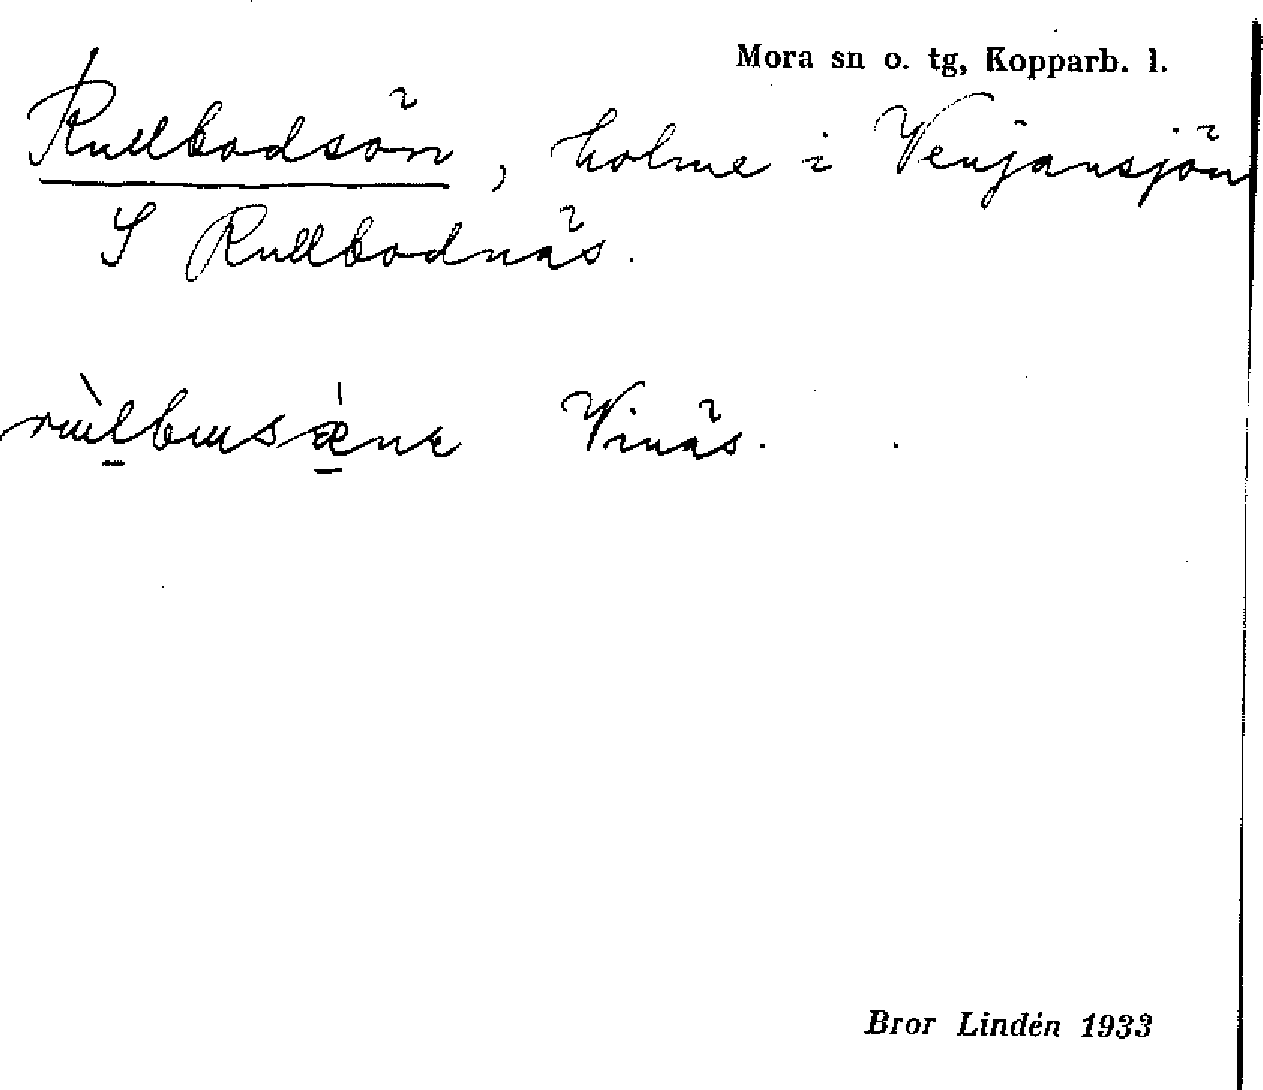 Mora sn o. tg, Kopparb. l.
Rullbodsön, holme i Venjansjön
S Rullbodnäs.
Vinäs.
Bror Lindén 1933